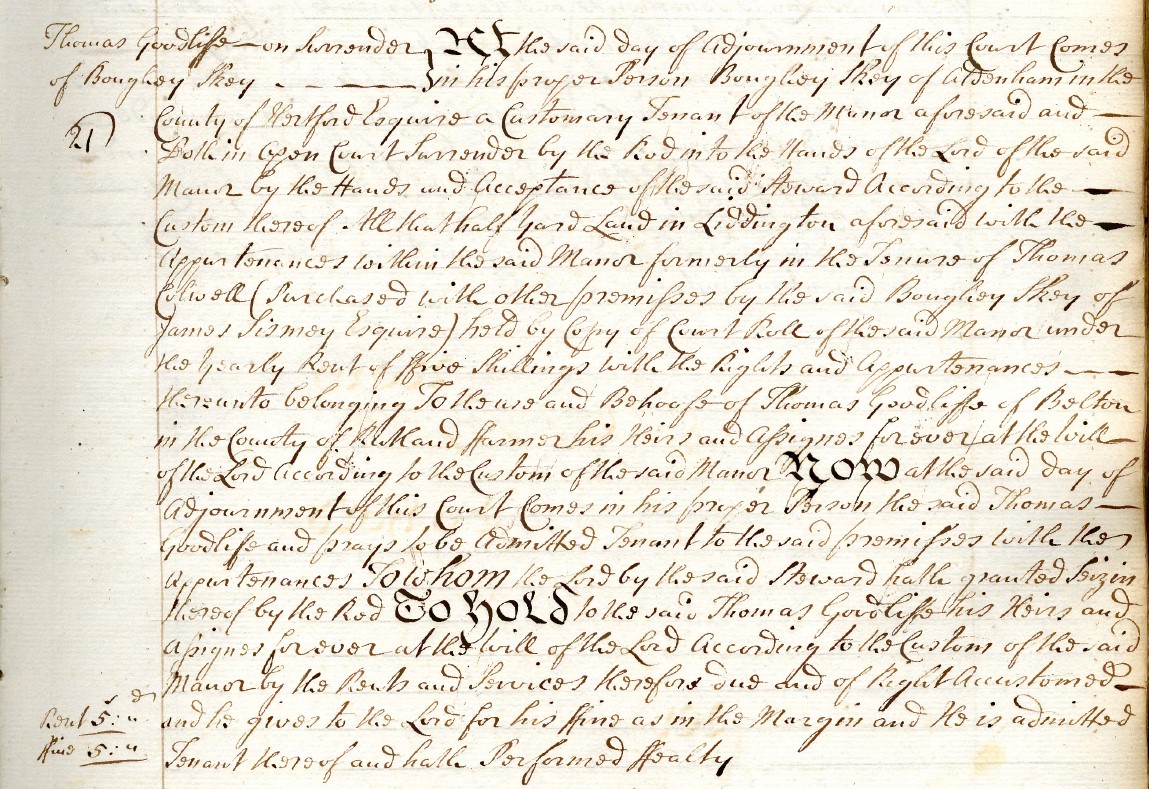 Thomas Goodliffe on Surrender } At the said day of Adjournment of this Court Comes
of Boughey Skey } in his proper Person Boughey Skey of Aldenham in the
21) County of Hertford Esquire a Customary Tenant of the Manor aforesaid and
Doth in Open Court Surrender by the Rod into the Hands of the Lord of the said
Manor by the Hands and Acceptance of the said Steward According to the
Custom thereof All that half Yard Land in Liddington aforesaid with the
Appurtenances within the said Manor formerly in the Tenure of Thomas
Colwell (Purchased with other premisses by the said Boughey Skey of
James Sismey Esquire) held by Copy of Court Roll of the said Manor under
the Yearly Rent of ffive Shillings with the Rights and Appurtenances
thereunto belonging To the use and Behoofe of Thomas Goodliffe of Belton
in the County of Rutland ffarmer his Heirs and Assignes for ever at the Will
of the Lord According to the Custom of the said Manor Now at the said day of
Adjournment of this Court Comes in his proper Person the said Thomas
Goodliffe and prays to be Admitted Tenant to the said premisses with the
Appurtenances To whom the Lord by the said Steward hath granted Seizin
thereof by the Rod To Hold to the said Thomas Goodliffe his Heirs and
Assignes for ever at the Will of the Lord According to the Custom of the said
Manor by the Rents and Services therefore due and of Right Accustomed
Rent 5:" and he gives to the Lord for his ffine as in the Margin and He is admitted
ffine 5:" Tenant thereof and hath Performed ffealty